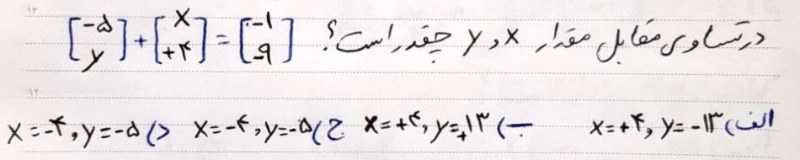 ۱۳
در تساوی مقابل مقدار x و y چقدر است؟ [-۵ y] + [x +۴] = [-۱ -۹]
۱۴
الف) x=+۴, y=-۱۳ ب) x=+۴, y=+۱۳ ج) x=-۴, y=-۵ د) x=-۴, y=-۵